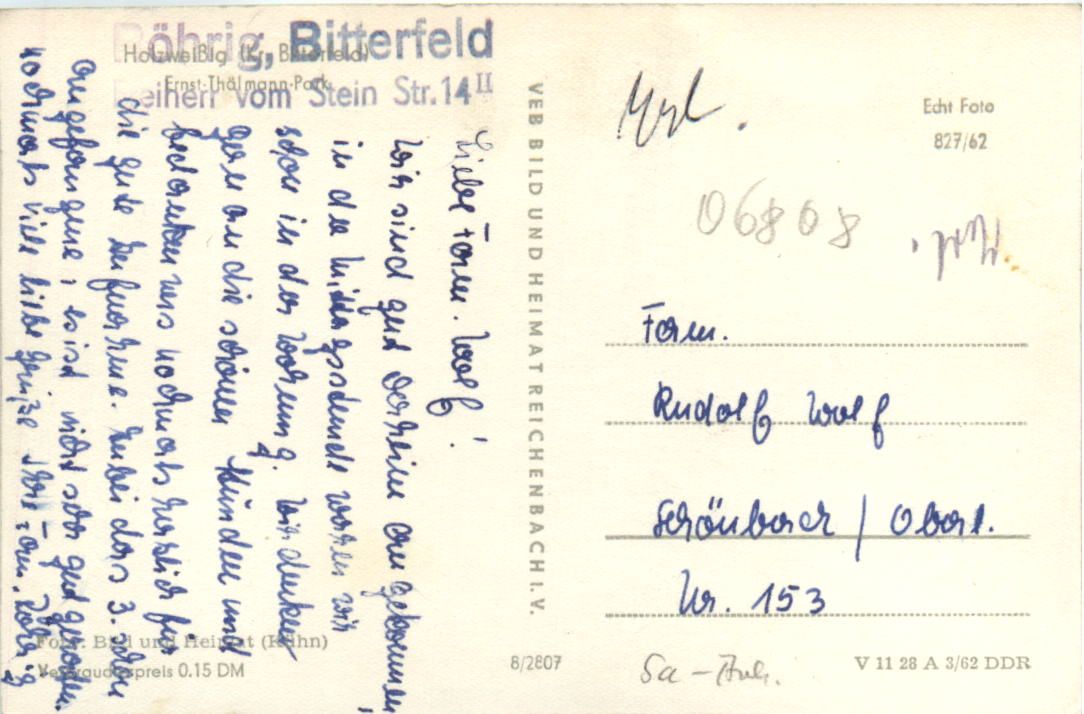 Röhrig, Bitterfeld
Freiherr vom Stein Str. 14 II
Holzweißig (Kr. Bitterfeld)
Ernst-Thälmann-Park
Liebe Fam. Wolf!
Wir sind gut daheim angekommen,
in der Mittagsstunde waren wir
schon in der Wohnung. Wir denken
gern an die schönen Stunden und
bedanken uns nochmals herzlich für
die gute Aufnahme. Anbei das 3. schon
angefangene, es ist nicht sehr gut geworden.
nochmals viele liebe Grüße Fam. Röhrig
Foto: Bild und Heimat (Kühn)
Verbraucherpreis 0.15 DM
VEB BILD UND HEIMAT REICHENBACH I.V.
8/2807
Echt Foto
827/62
06808
Fam.
Rudolf Wolf
Schönbach / Oberl.
Nr. 153
Sa-Anh.
V 11 28 A 3/62 DDR